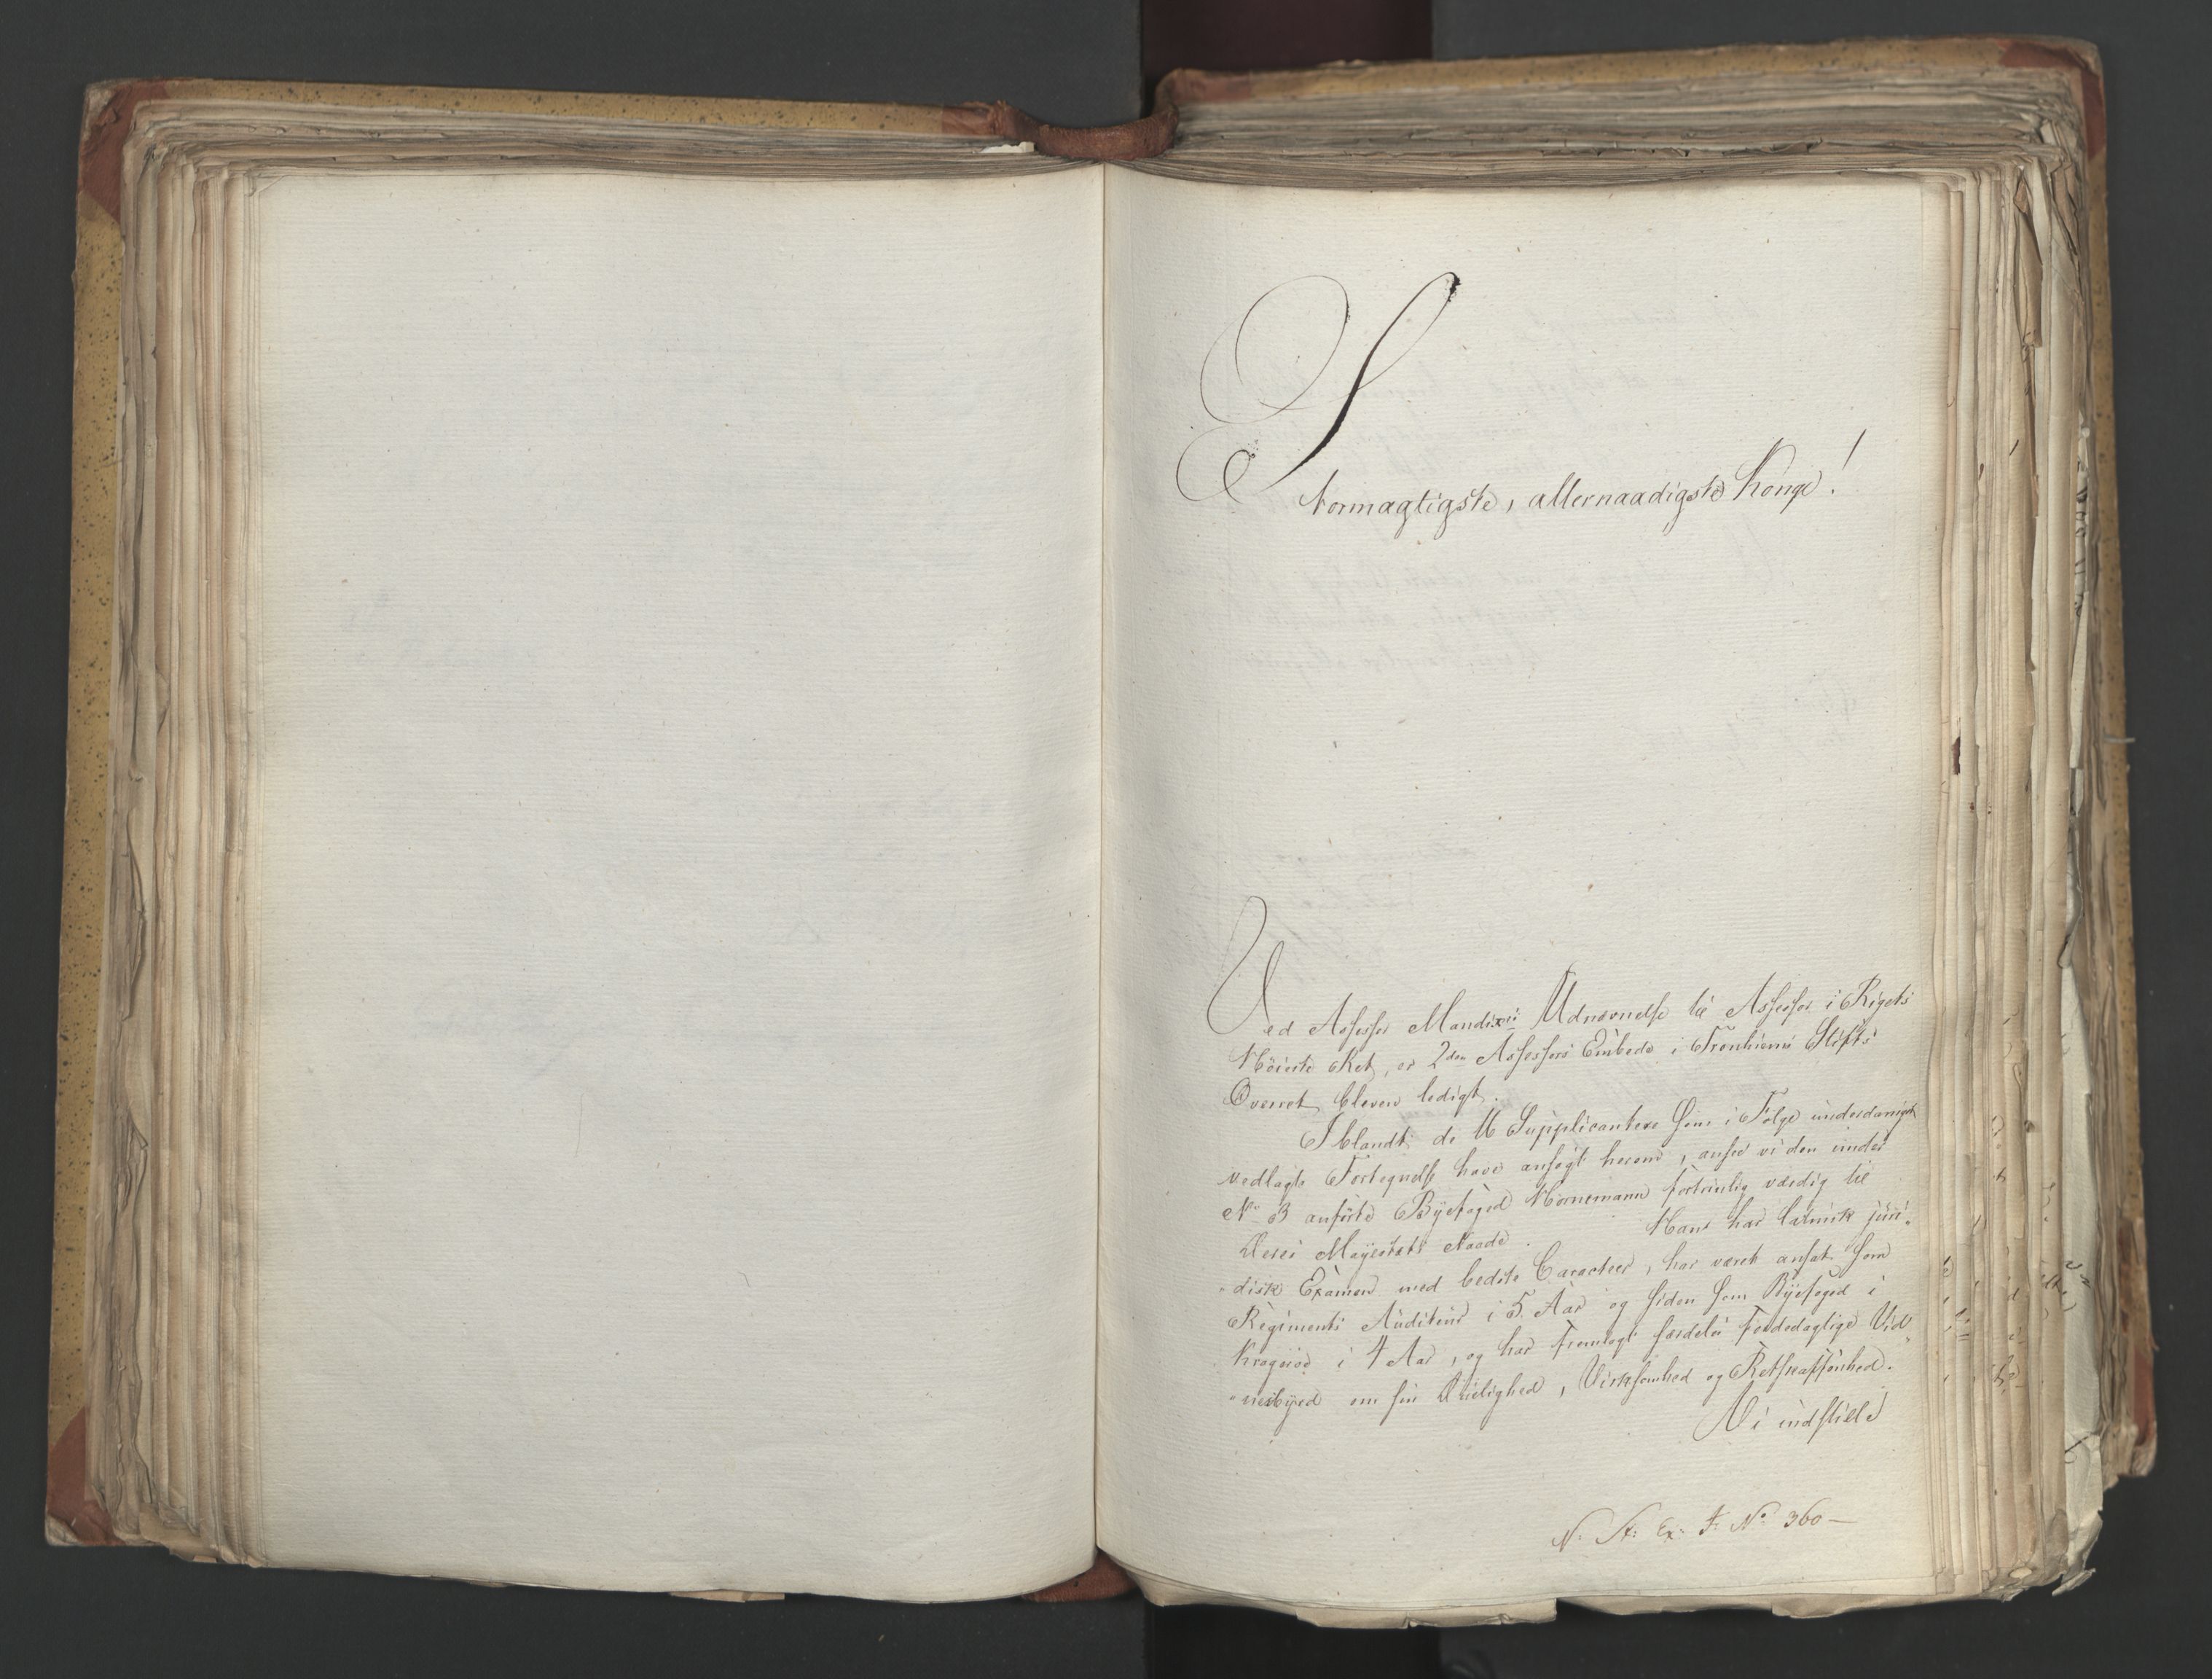 Stormægtigste, allernaadigste Konge!
Ved Assessor Mandixs Udnævnelse til Assessor i Rigets
Höieste Ret, er 2den Assessors Embede i Tronhiems Stifts
Overret bleven ledigt.
Iblandt de 16 Supplicantere som i Følge underdanigst
vedlagte Fortegnelse have ansøgt herom, ansee vi den under
No 3 anførte Byefoged Hornemann fortrinlig værdig til
Deres Majestæts Naade. Hans har latinsk juri-
disk Examen med bedste Caracteer, har været ansat som
Regiments Auditeur i 5 Aar og siden som Byefoged i
Krageröe i 4 Aar, og har fremlagt særdeles fordeelagtige Vid-
nesbyrd om sin Duelighed, Virksomhed og Retskaffenhed.
Vi indstille
N: St: Ex: F: No 360 —